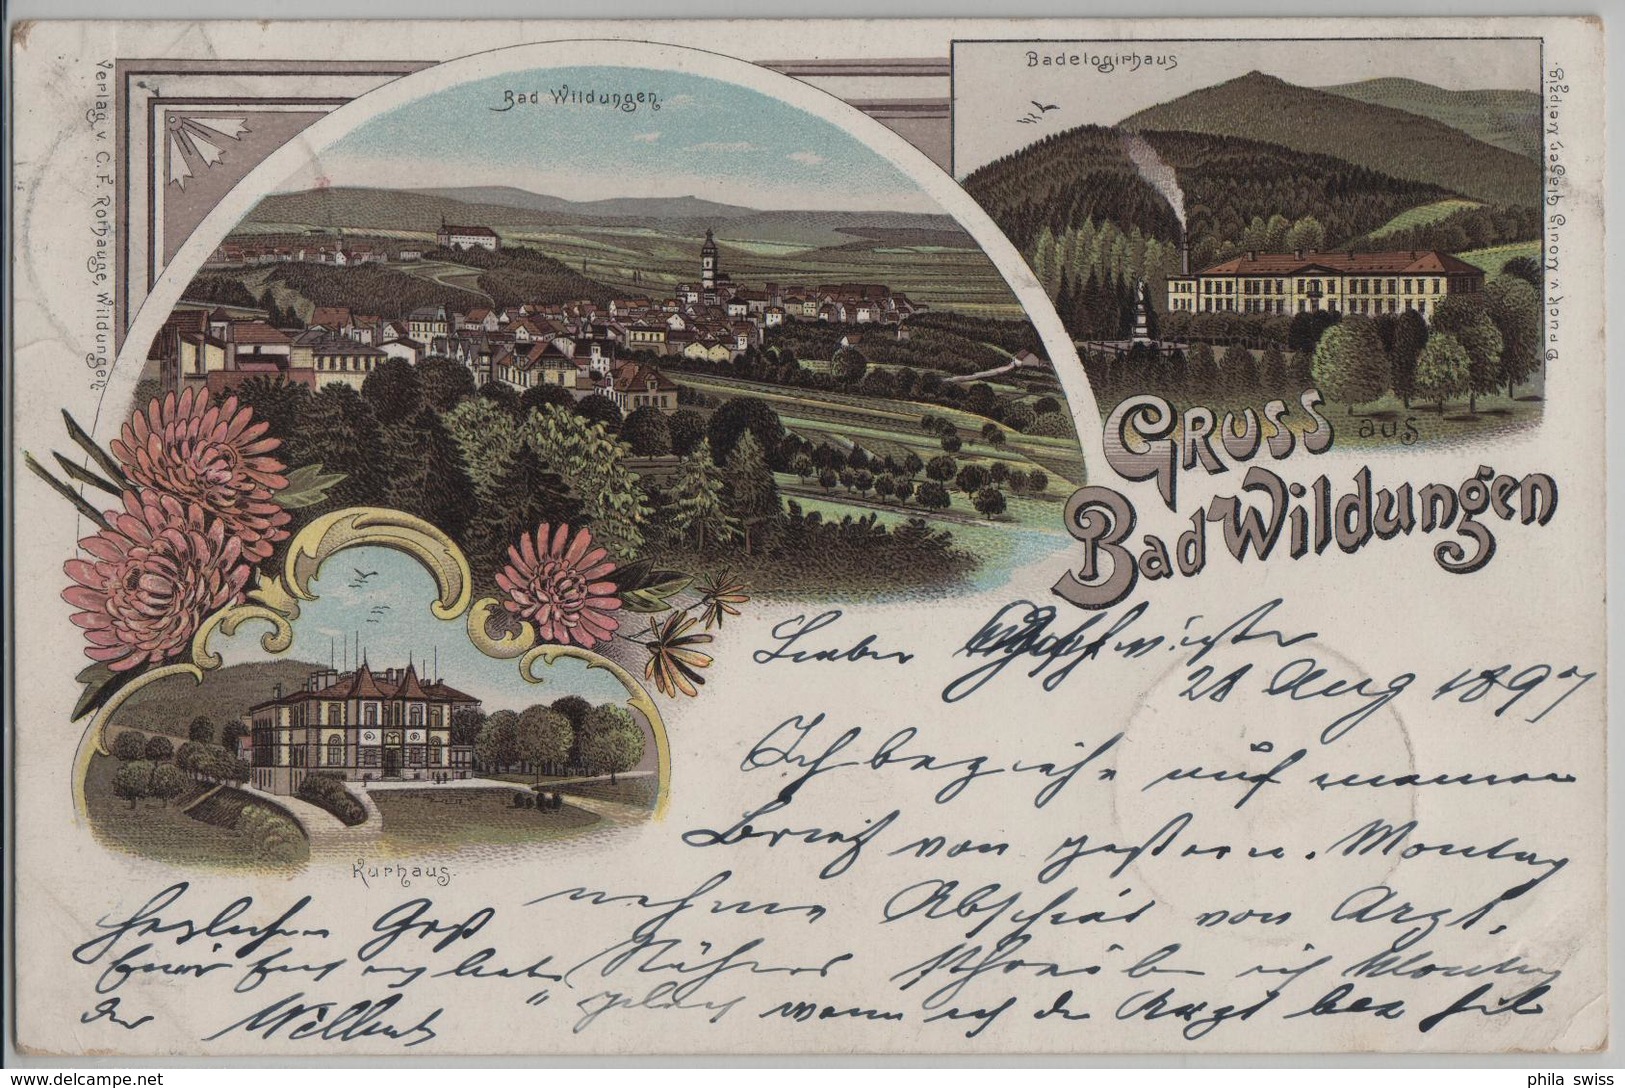 Verlag v. C.F. Rorhauge, Wildungen.
Bad Wildungen.
Badelogirhaus
Druck v. Louis Glaser, Leipzig.
GRUSS aus
Bad Wildungen
Kurhaus.
Lieber
28 Aug 1897
Ich beziehe auf meinen
Brief von gestern. Montag
nehme Abschied von Arzt,
Näheres schreibe ich Montag
gleich wenn ich den Arzt
herzlichen Gruß
der
phila swiss